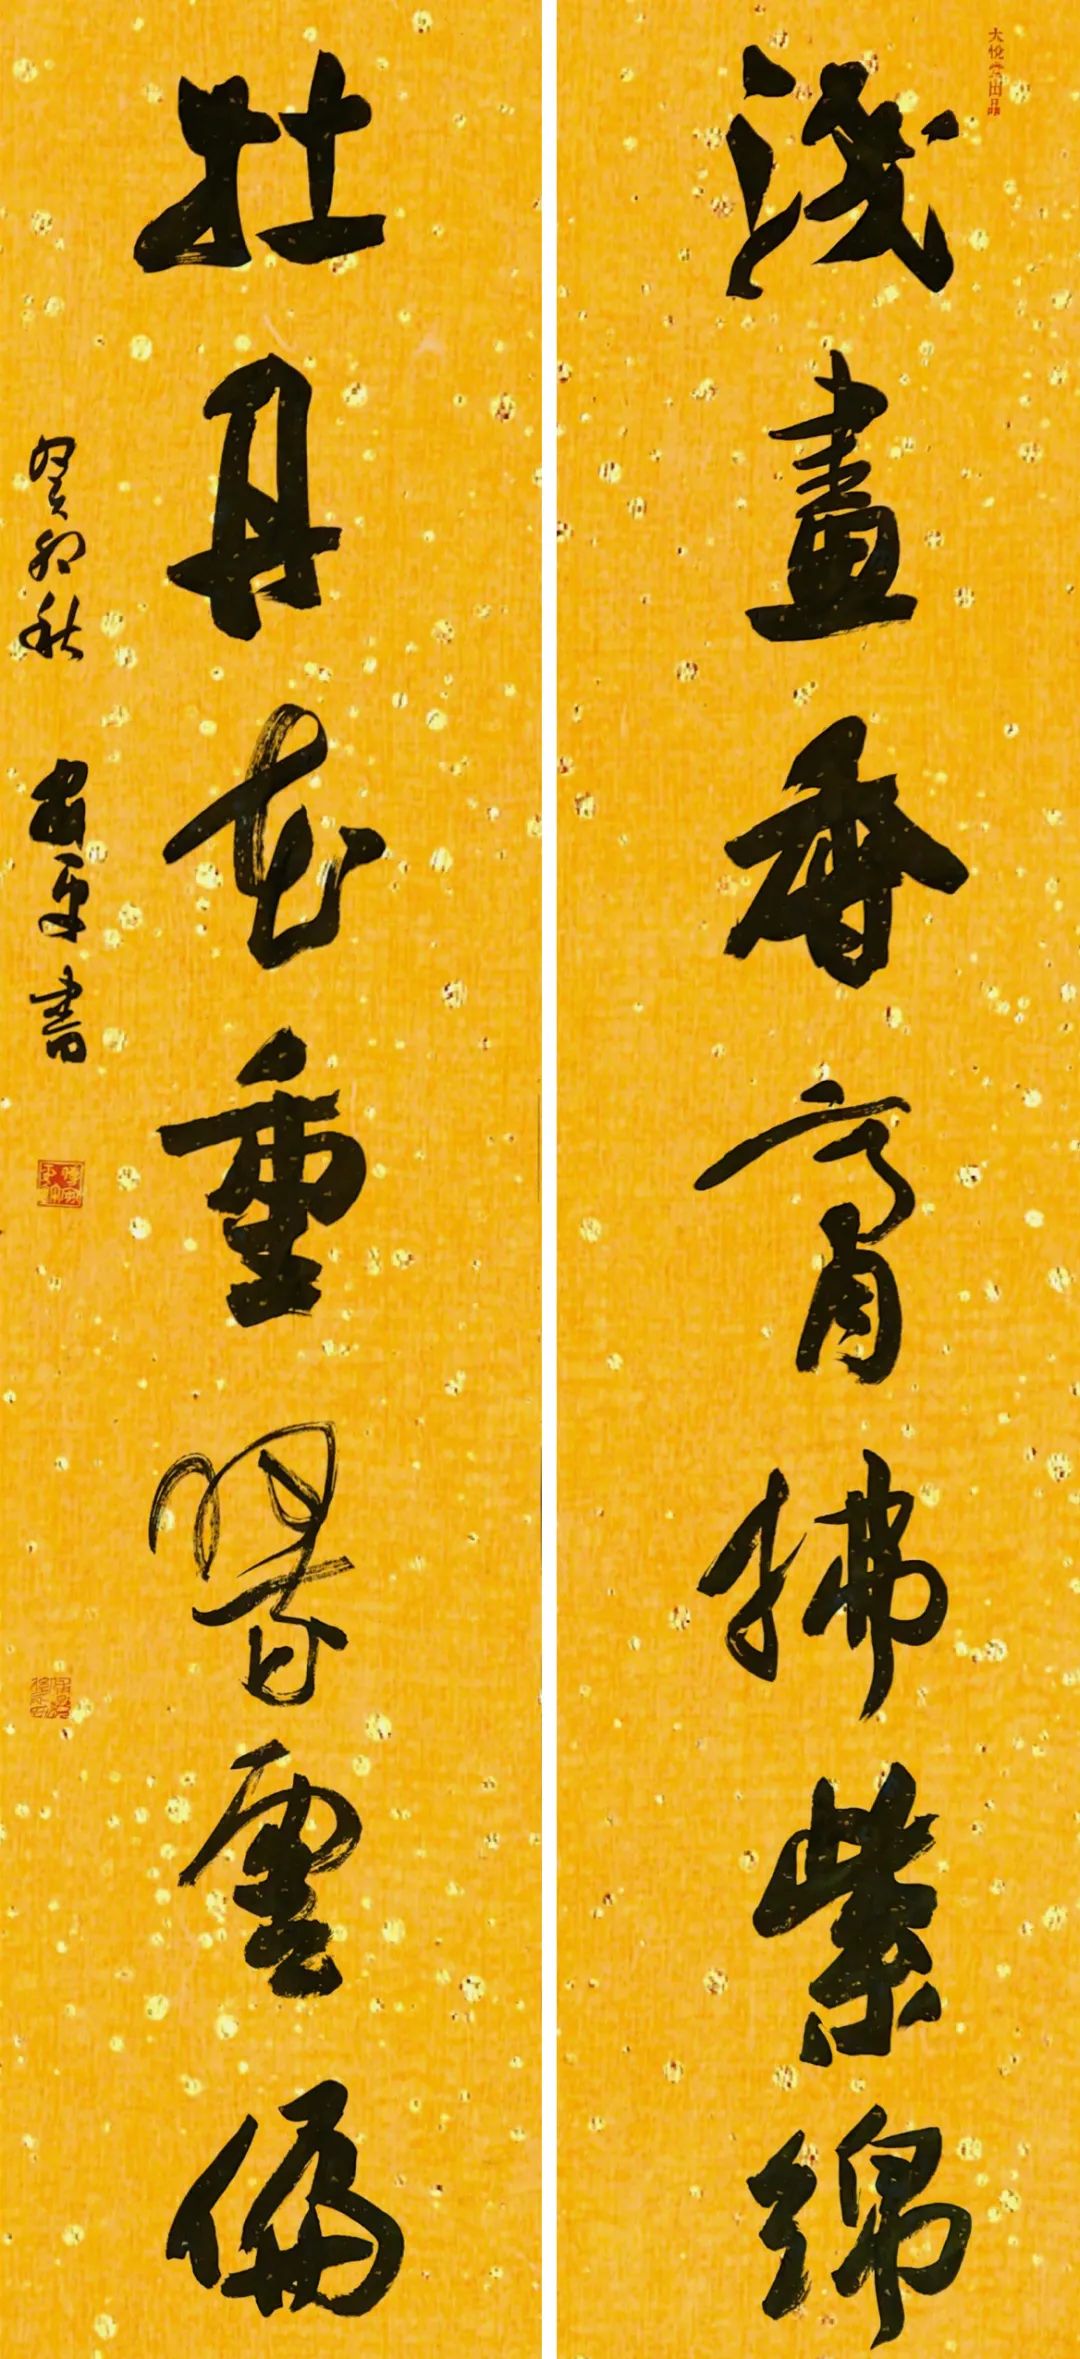 大悅堂出品
淺畫香膏拂紫綿
牡丹花重翠雲偏
癸卯秋 安平書